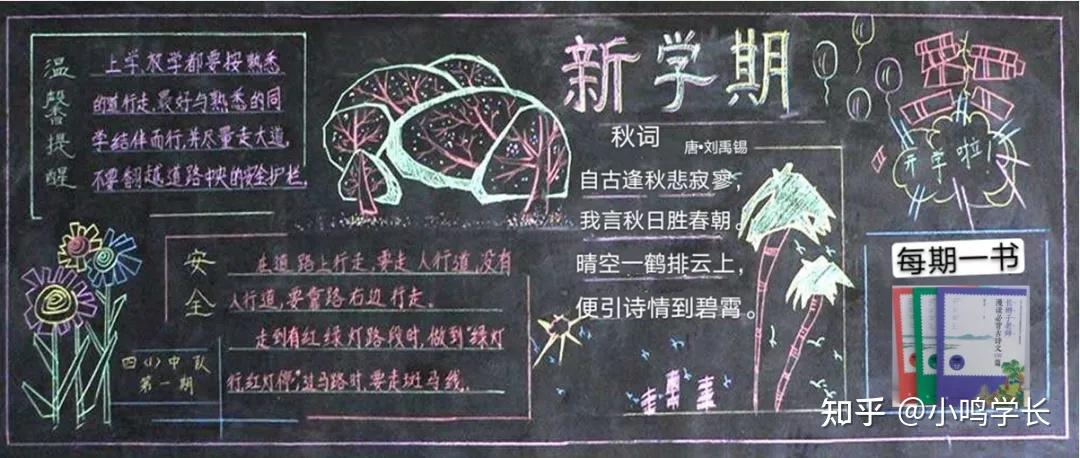 温馨提醒
上学放学都要按熟悉
的道行走,最好与熟悉的同
学结伴而行,并尽量走大道,
不要翻越道路中央的安全护栏.
安全
在道路上行走,要走人行道,没有
人行道,要靠路右边行走.
走到有红绿灯路段时,做到"绿灯
行红灯停"过马路时,要走斑马线.
四(1)中队
第一期
新学期
秋词
唐•刘禹锡
自古逢秋悲寂寥,
我言秋日胜春朝。
晴空一鹤排云上,
便引诗情到碧霄。
开学啦!
每期一书
长辫子老师
漫读必背古诗文
篇
知乎 @小鸣学长